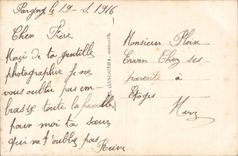 Pargny le 19-1.1916
Cher Frere
Merci de ta gentille
photographie je ne
vous oublie pas em
brasse toute la famille
pour moi ta sœur
qui ne t'oublie pas
Monsieur Plain
chez ses
parents à
Etoges
Marne